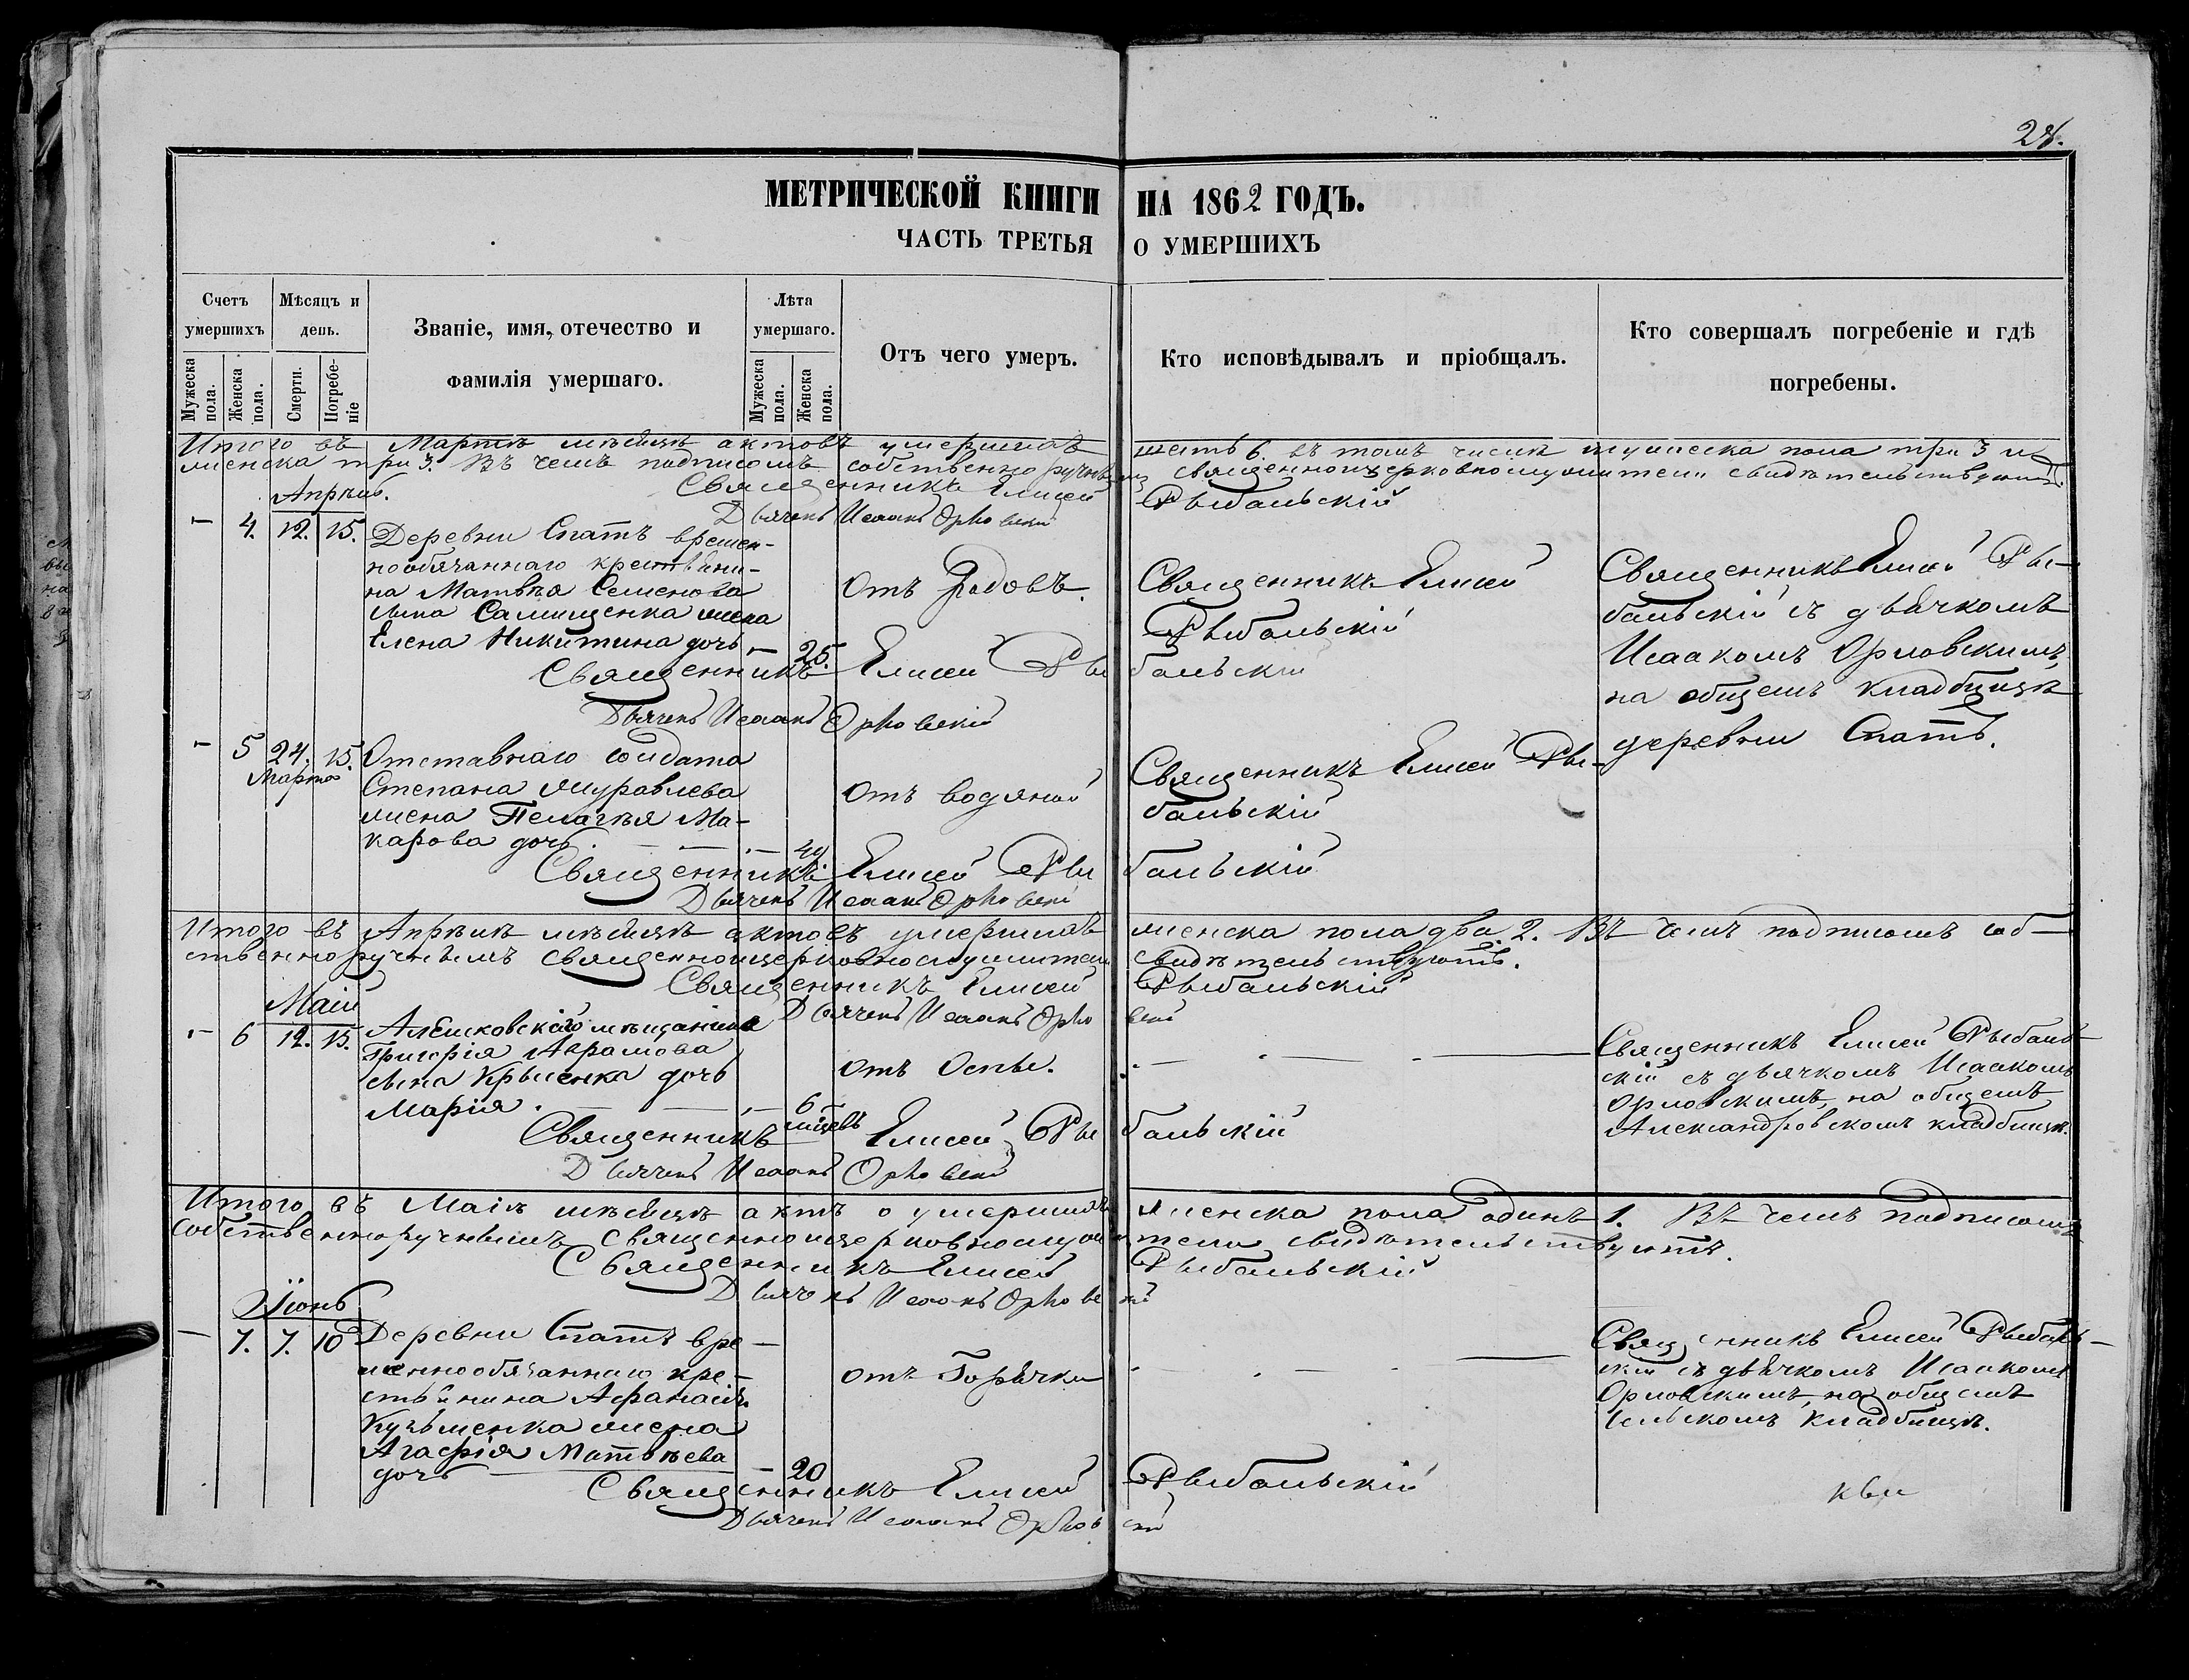 28.
МЕТРИЧЕСКОЙ КНИГИ НА 1862 ГОДЪ.
ЧАСТЬ ТРЕТЬЯ О УМЕРШИХЪ
Счетъ умершихъ
Мужеска пола.
Женска пола.
Мѣсяцъ и день.
Смерти.
Погребеніе
Званіе, имя, отечество и
фамилія умершаго.
Лѣта умершаго.
Мужеска пола.
Женска пола.
Отъ чего умеръ.
Кто исповѣдывалъ и пріобщалъ.
Кто совершалъ погребеніе и гдѣ
погребены.
Итого въ Мартѣ мѣсяцѣ актовъ умершихъ шесть 6. въ томъ числѣ мужеска пола три 3 и
женска три 3. Въ чемъ подписомъ собственноручнымъ священноцерковнослужители свидѣтельствуютъ.
Священникъ Елисей Рыбальскій
Дьячекъ Исаакъ Орловскій
Апрѣль.
— 4. 12. 15.
Деревни Спатъ времен-
нообязаннаго крестьяни-
на Матвѣя Семенова
сына Самищенка жена
Елена Никитина дочь — 25.
Отъ Родовъ.
Священникъ Елисей
Рыбальскій
Священникъ Елисей Ры-
бальскій съ дьячкомъ
Исаакомъ Орловскимъ,
на общемъ кладбищѣ
деревни Спатъ.
Священникъ Елисей Рыбальскій
Дьячекъ Исаакъ Орловскій
— 5 24. Марта 15.
Отставнаго солдата
Степана Журавлева
жена Пелагѣя Ма-
карова дочь. — 49.
Отъ водяной
Священникъ Елисей Ры-
бальскій
Священникъ Елисей Рыбальскій
Дьячекъ Исаакъ Орловскій
Итого въ Апрѣлѣ мѣсяцѣ актовъ умершихъ женска пола два 2. Въ чемъ подписомъ соб-
ственноручнымъ священноцерковнослужители свидѣтельствуютъ.
Священникъ Елисей Рыбальскій
Дьячекъ Исаакъ Орловскій
Маій
— 6 12. 15.
Алешковскаго мѣщанина
Григорія Аврамова
сына Крысенка дочь
Марія. — 6 мцевъ
отъ Оспы.
Священникъ Елисей Рыбаль-
скій съ дьячкомъ Исаакомъ
Орловскимъ, на общемъ
Александровскомъ кладбищѣ.
Священникъ Елисей Рыбальскій
Дьячекъ Исаакъ Орловскій
Итого въ Маіѣ мѣсяцѣ актъ о умершихъ женска пола одинъ 1. Въ чемъ подписомъ
собственноручнымъ священноцерковнослужители свидѣтельствуютъ.
Священникъ Елисей Рыбальскій
Дьячекъ Исаакъ Орловскій
Іюнь
— 7. 7. 10
Деревни Спатъ вре-
меннообязаннаго кре-
стьянина Афанасія
Кузьменка жена
Агафія Матвѣева
дочь — 20
отъ Горячки
Священникъ Елисей Рыбаль-
скій съ дьячкомъ Исаакомъ
Орловскимъ, на общемъ
сельскомъ кладбищѣ.
Священникъ Елисей Рыбальскій
Дьячекъ Исаакъ Орловскій